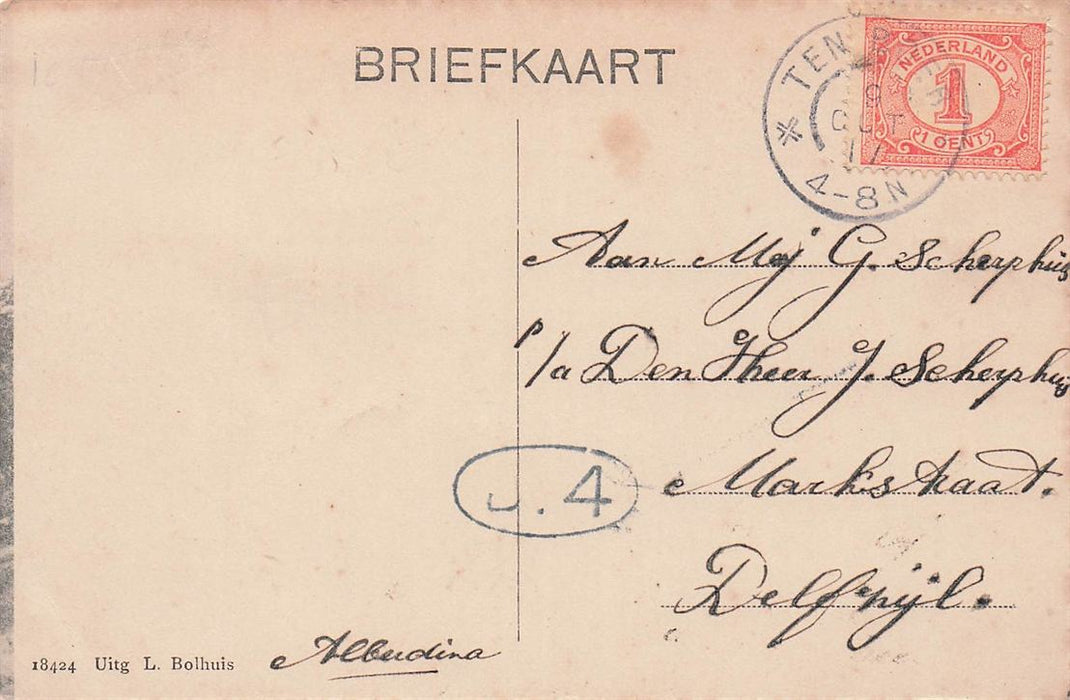 BRIEFKAART
TEN
9
OCT
11
4-8N
NEDERLAND
1
1 CENT
Aan Mej G. Scherphuis
p/a Den Heer J. Scherphuis
Markstraat.
Delfzijl.
J. 4
Alberdina
18424 Uitg L. Bolhuis